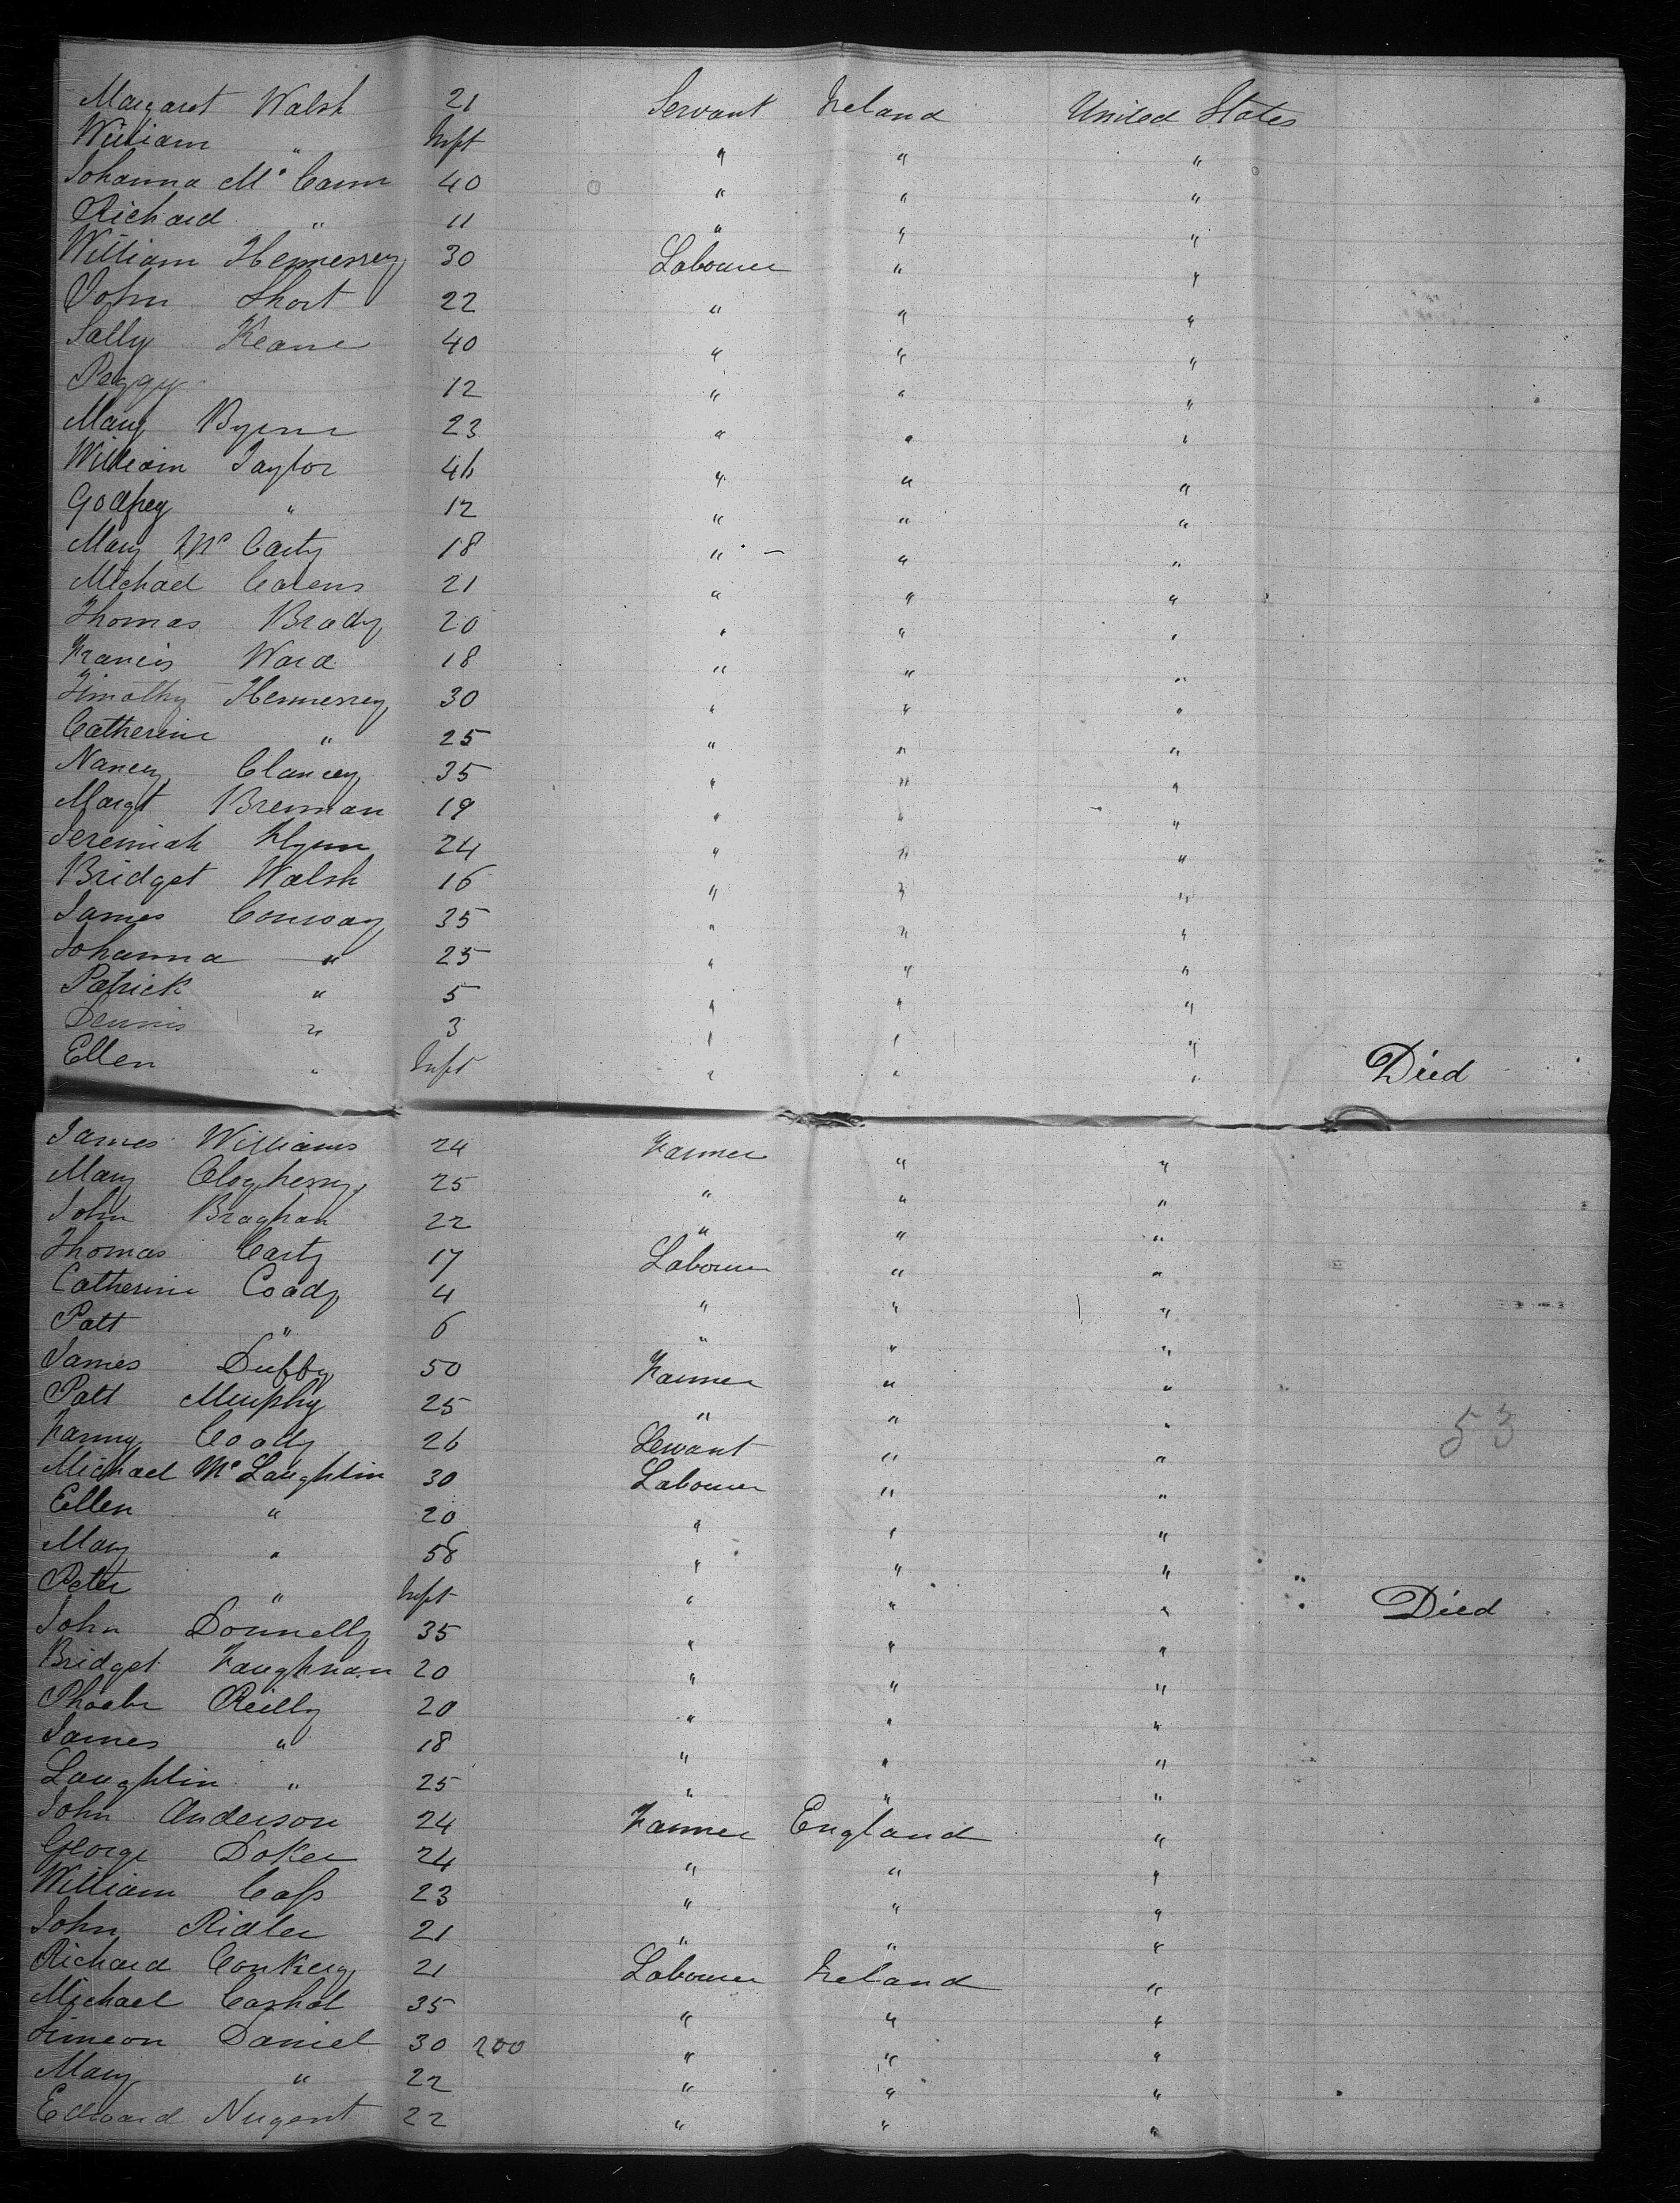 Margaret Walsh 21 Servant Ireland United States
William " Inft " " "
Johanna Mc Cann 40 " " "
Richard " 11 " " "
William Hennessey 30 Labourer " "
John Short 22 " " "
Sally Keane 40 " " "
Peggy 12 " " "
Mary Byrne 23 " " "
William Taylor 46 " " "
Godfrey " 12 " " "
Mary Mc Carty 18 " " "
Michael Carens 21 " " "
Thomas Brady 20 " " "
Francis Ward 18 " " "
Timothy Hennessey 30 " " "
Catherine " 25 " " "
Nancy Clancey 35 " " "
Margt Brennan 19 " " "
Jeremiah Flynn 24 " " "
Bridget Walsh 16 " " "
James Conway 35 " " "
Johanna " 25 " " "
Patrick " 5 " " "
Dennis " 3 " " "
Ellen " Inft " " " Died
James Williams 24 Farmer " "
Mary Clogherry 25 " " "
John Braghan 22 " " "
Thomas Carty 17 Labourer " "
Catherine Coady 4 " " "
Patt " 6 " " "
James Duffy 50 Farmer " "
Patt Murphy 25 " " "
53
Fanny Coady 26 Servant " "
Michael Mc Laughlin 30 Labourer " "
Ellen " 20 " " "
Mary " 58 " " "
Peter " Inft " " " Died
John Donnelly 35 " " "
Bridget Faughnan 20 " " "
Phoebe Reilly 20 " " "
James " 18 " " "
Laughlin " 25 " " "
John Anderson 24 Farmer England "
George Doker 24 " " "
William Cass 23 " " "
John Ridler 21 " " "
Richard Conkery 21 Labourer Ireland "
Michael Cashal 35 " " "
Simeon Daniel 30 200 " " "
Mary " 22 " " "
Edward Nugent 22 " " "